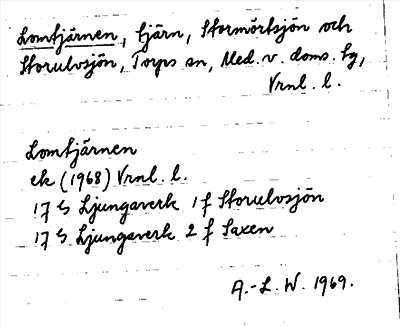 Lomtjärnen, tjärn, Stormörtsjön och
Storulvsjön, Torps sn, Med. v. doms. tg,
Vrnl. l.
Lomtjärnen
ek (1968) Vrnl. l.
17 G Ljungaverk 1 f Storulvsjön
17 G Ljungaverk 2 f Saxen
A.-L. W. 1969.